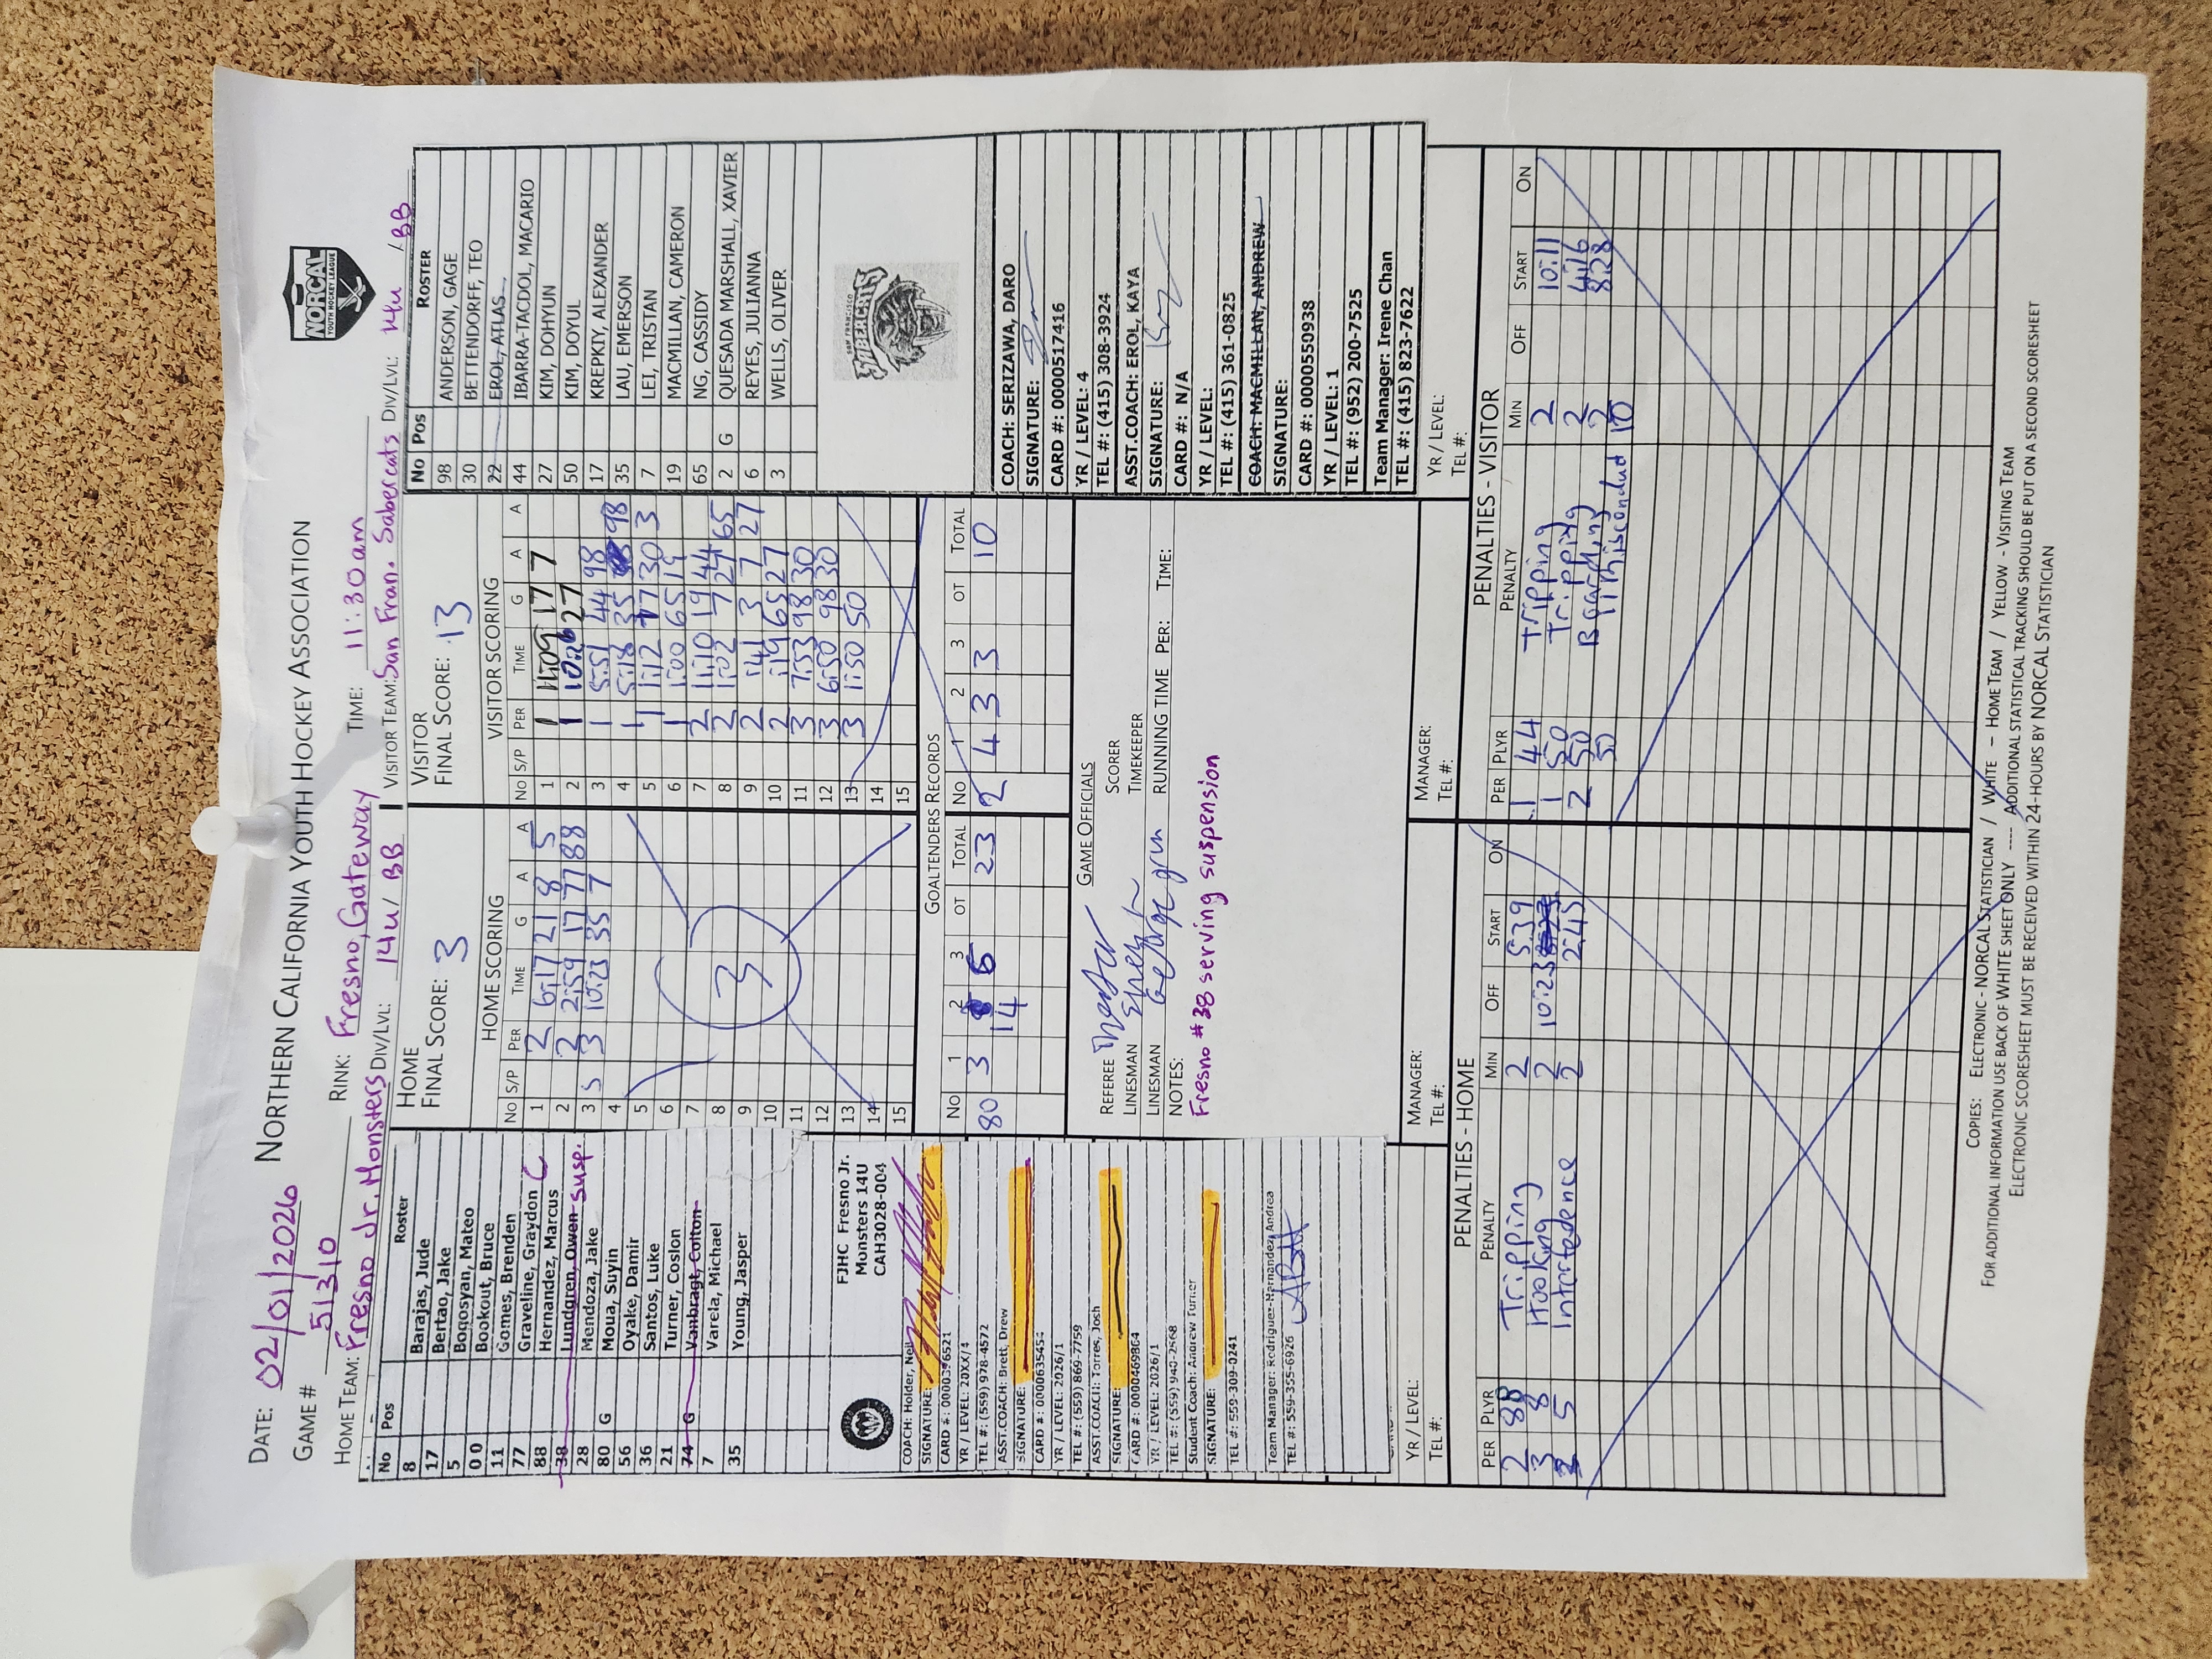 DATE: 02/01/2026
NORTHERN CALIFORNIA YOUTH HOCKEY ASSOCIATION
NORCAL
YOUTH HOCKEY LEAGUE
GAME # 51310
RINK: Fresno, Gateway
TIME: 11:30am
HOME TEAM: Fresno Jr. Monsters DIV/LVL: 14u/ BB
VISITOR TEAM: San Fran. Sabercats DIV/LVL: 14u /BB
No Pos Roster
8 Barajas, Jude
17 Bertao, Jake
5 Bogosyan, Mateo
00 Bookout, Bruce
11 Gomes, Brenden
77 Graveline, Graydon C
88 Hernandez, Marcus
38 Lundgren, Owen Susp.
28 Mendoza, Jake
80 G Moua, Suyin
56 Oyake, Damir
36 Santos, Luke
21 Turner, Coslon
74 G Vanbragt, Colton
7 Varela, Michael
35 Young, Jasper
FJHC Fresno Jr.
Monsters 14U
CAH3028-004
COACH: Holder, Neil
SIGNATURE:
CARD #: 0000396521
YR / LEVEL: 20XX/4
TEL #: (559) 978-4572
ASST.COACH: Brett, Drew
SIGNATURE:
CARD #: 0000635454
YR / LEVEL: 2026/1
TEL #: (559) 869-7759
ASST.COACH: Torres, Josh
SIGNATURE:
CARD #: 0000469864
YR / LEVEL: 2026/1
TEL #: (559) 940-2568
Student Coach: Andrew Turner
SIGNATURE:
TEL #: 559-309-0241
Team Manager: Rodriguez-Hernandez, Andrea
TEL #: 559-355-6926
YR / LEVEL:
TEL #:
HOME
FINAL SCORE: 3
HOME SCORING
No S/P PER TIME G A A
1 2 6:17 21 8 5
2 2 2:59 17 77 88
3 S 3 10:23 35 7
4
5
6
7
8
9
10
11
12
13
14
15
3
VISITOR
FINAL SCORE: 13
VISITOR SCORING
No S/P PER TIME G A A
1 1 11:09 17 7
2 1 10:26 27
3 1 5:51 44 98
4 1 5:18 35 98
5 1 1:12 17 30 3
6 1 1:00 65 19
7 2 11:10 19 44
8 2 1:02 7 24 65
9 2 :41 3 7 27
10 2 :19 65 27
11 3 7:53 98 30
12 3 6:50 98 30
13 3 1:50 50
14
15
GOALTENDERS RECORDS
No 1 2 3 OT TOTAL
80 3 14 6 23
No 1 2 3 OT TOTAL
2 4 3 3 10
GAME OFFICIALS
REFEREE
LINESMAN
LINESMAN
SCORER
TIMEKEEPER
RUNNING TIME PER: TIME:
NOTES:
Fresno #38 serving suspension
MANAGER:
TEL #:
MANAGER:
TEL #:
No Pos ROSTER
98 ANDERSON, GAGE
30 BETTENDORFF, TEO
22 EROL, ATLAS
44 IBARRA-TACDOL, MACARIO
27 KIM, DOHYUN
50 KIM, DOYUL
17 KREPKIY, ALEXANDER
35 LAU, EMERSON
7 LEI, TRISTAN
19 MACMILLAN, CAMERON
65 NG, CASSIDY
2 G QUESADA MARSHALL, XAVIER
6 REYES, JULIANNA
3 WELLS, OLIVER
SAN FRANCISCO
SABERCATS
COACH: SERIZAWA, DARO
SIGNATURE:
CARD #: 0000517416
YR / LEVEL: 4
TEL #: (415) 308-3924
ASST.COACH: EROL, KAYA
SIGNATURE:
CARD #: N/A
YR / LEVEL:
TEL #: (415) 361-0825
COACH: MACMILLAN, ANDREW
SIGNATURE:
CARD #: 0000550938
YR / LEVEL: 1
TEL #: (952) 200-7525
Team Manager: Irene Chan
TEL #: (415) 823-7622
YR / LEVEL:
TEL #:
PENALTIES - HOME
PER PLYR PENALTY MIN OFF START ON
2 88 Tripping 2 5:39
3 8 Hooking 2 10:23
3 5 Interfedence 2 2:45
PENALTIES - VISITOR
PER PLYR PENALTY MIN OFF START ON
1 44 Tripping 2 10:11
1 50 Tripping 2 4:16
2 50 Boarding 2 8:28
50 Misconduct 10
COPIES: ELECTRONIC - NORCAL STATISTICIAN / WHITE – HOME TEAM / YELLOW - VISITING TEAM
FOR ADDITIONAL INFORMATION USE BACK OF WHITE SHEET ONLY ---- ADDITIONAL STATISTICAL TRACKING SHOULD BE PUT ON A SECOND SCORESHEET
ELECTRONIC SCORESHEET MUST BE RECEIVED WITHIN 24-HOURS BY NORCAL STATISTICIAN